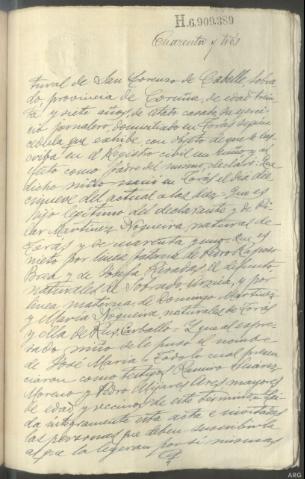 H.6.909.389
Cuarenta y tres
tural de San Lorenzo de Carballo, Sobra
do, provincia de Coruña, de edad trein
ta y siete años, de estado casado, su ejerci
cio jornalero, domiciliado en Toràs según
cédula que exhibe, con objeto de que se ins
criba en el Registro civil un niño; y al
efecto como padre del mismo, declaró: Que
dicho niño nació en Toràs el día diez
del actual a las diez. Que es
hijo legítimo del declarante y de
Martínez Nogueira, natural de
y de cuarenta y un Que es
nieto por línea paterna de Pedro Raposo
y de Josefa difuntos
naturales de Sobrado, y por
línea materna de Domingo Martínez
y María Nogueira, naturales de Toràs
y ella de Carballo. Y que al expre
sado niño se le puso el nombre
de José María. Todo lo cual presen
ciaron como testigos Ramiro Suárez
Moreno y Pedro Mijares mayores
de edad y vecinos de este término. Leí
da íntegramente esta acta e invitadas
las personas que deben suscribirla
a que la leyeran por sí mismas
ARG